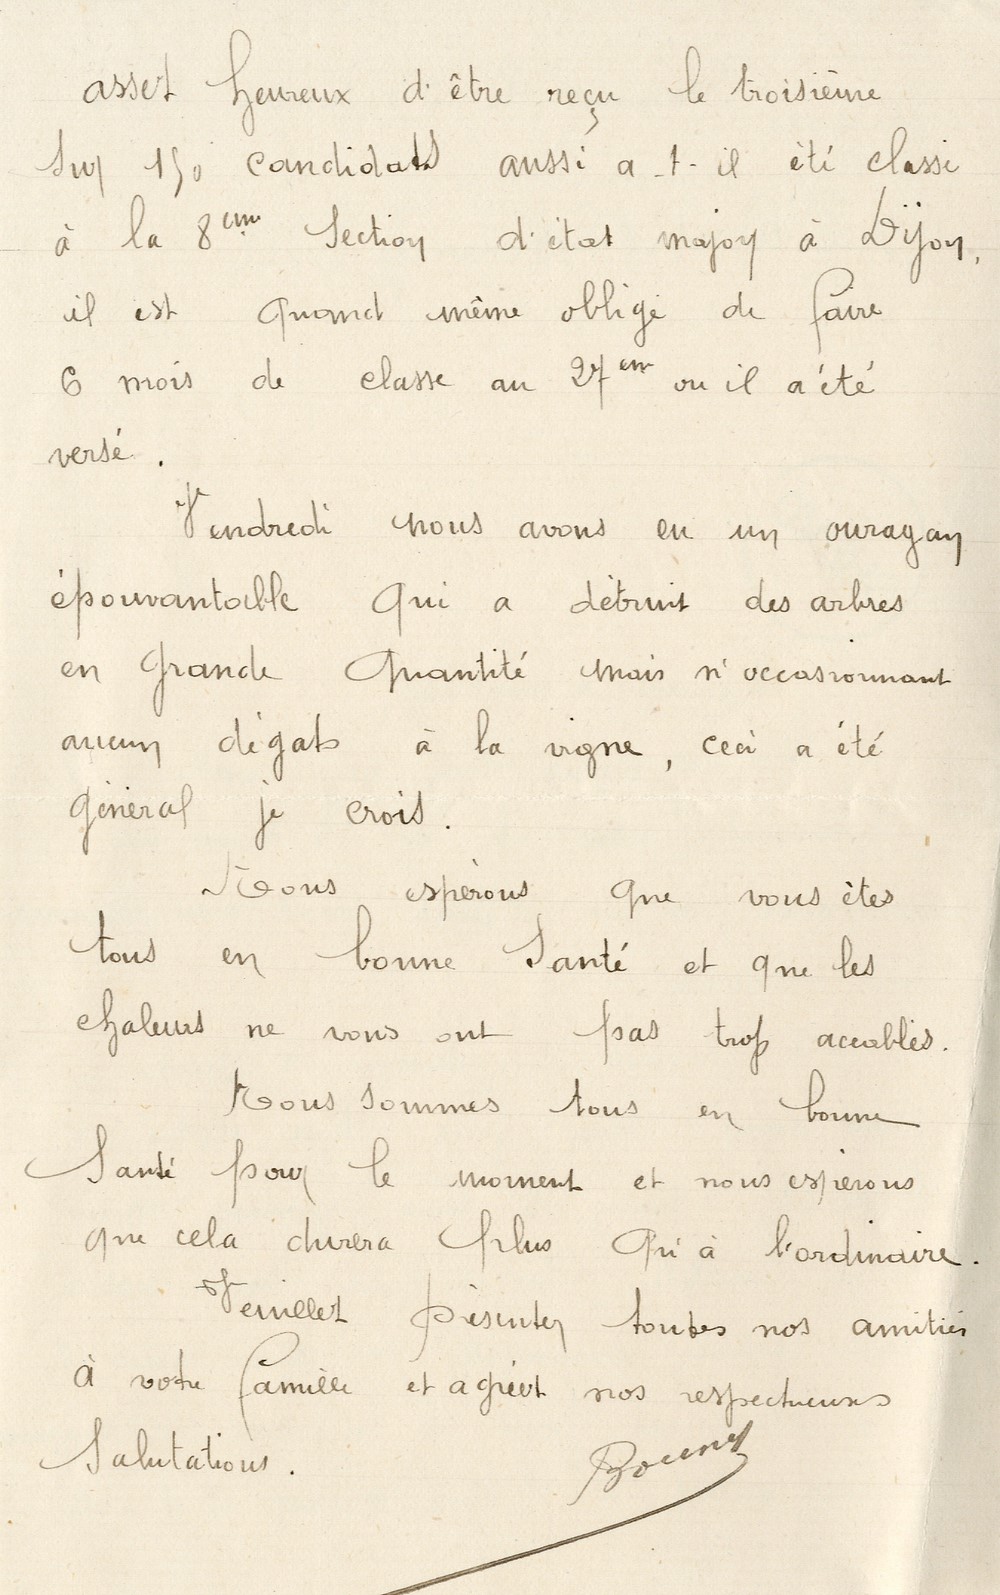 assez heureux d'être reçu le troisième
sur 150 candidats aussi a-t-il été classé
à la 8ème Section d'état major à Dijon,
il est quand même obligé de faire
6 mois de classe au 27em ou il a été
versé.
Vendredi nous avons eu un ouragan
épouvantable qui a détruit des arbres
en grande quantité mais n'occasionnant
aucun dégats à la vigne, ceci a été
général je crois.
Nous espérons que vous êtes
tous en bonne Santé et que les
chaleurs ne vous ont pas trop accablés.
Nous sommes tous en bonne
Santé pour le moment et nous espérons
que cela durera plus qu'à l'ordinaire.
Veuillez présenter toutes nos amitiés
à votre famille et agréez nos respectueuses
Salutations.